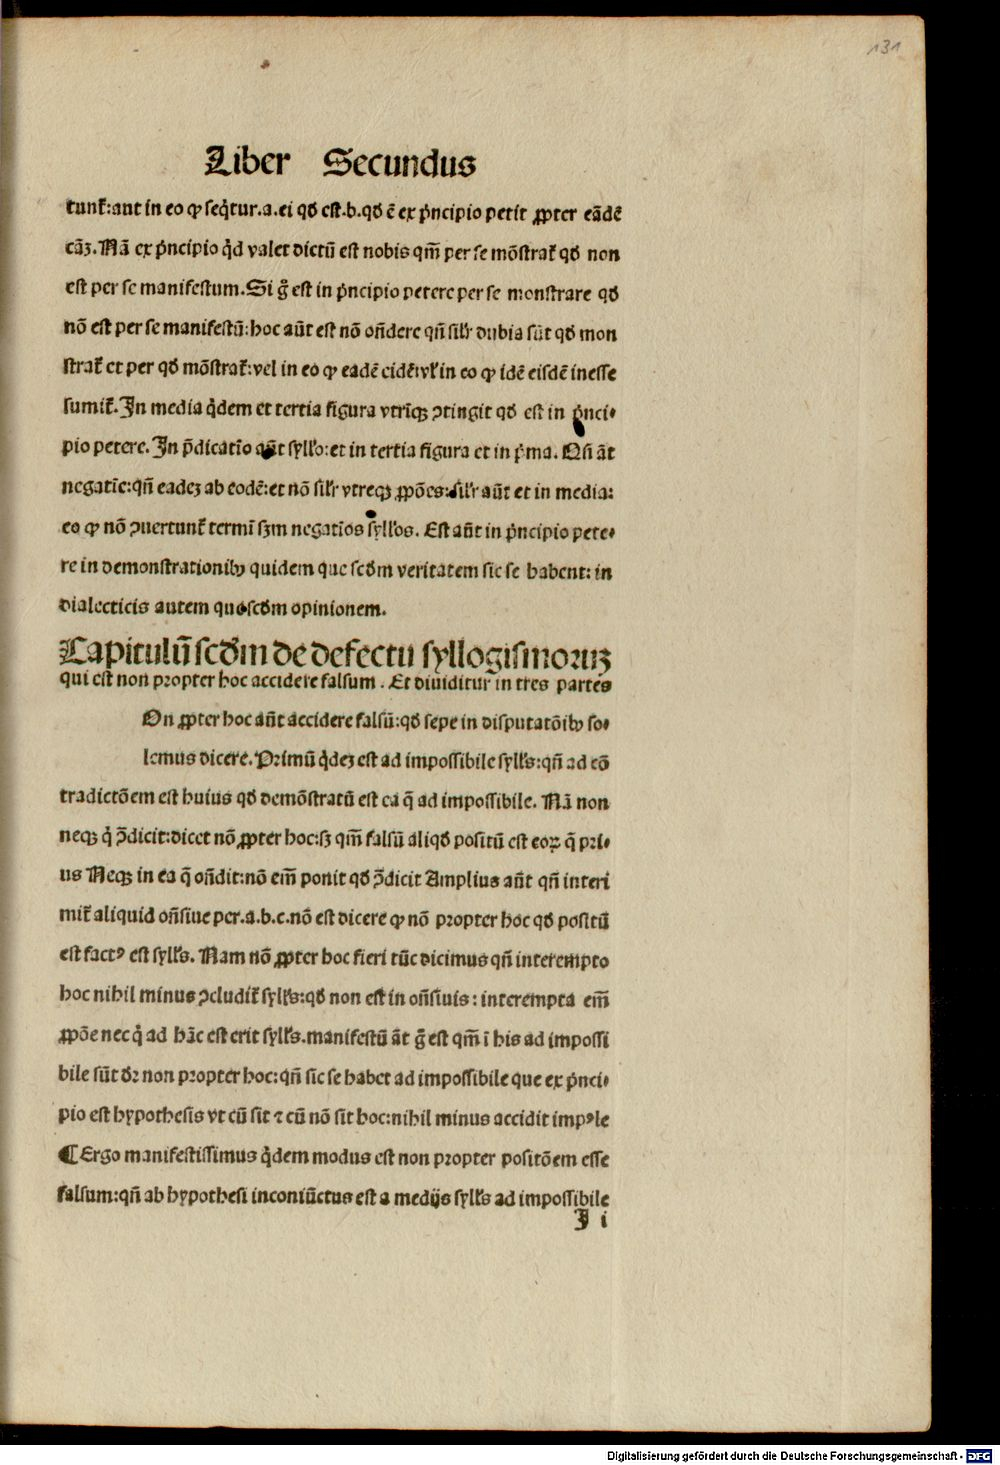 131
Liber Secundus
tunt᷑:aut in eo ꝙ seq̇tur.a.ei qd̛ est.b.qd̛ ē ex p̍ncipio petit ꝓpter eādē
cāȝ.Nā ex p̍ncipio q̇d valet dictū est nobis qm̄ per se mōstrat᷑ qd̛ non
est per se manifestum.Si g̊ est in p̍ncipio petere per se monstrare qd̛
nō est per se manifestū:hoc aūt est nō on̄dere qn̄ sil'r dubia sūt qd̛ mon
strat᷑ et per qd̛ mōstrat᷑:vel in eo ꝙ eadē eidē:vl' in eo ꝙ idē eisdē inesse
sumit᷑.In media q̇dem et tertia figura vtrīqȝ ↄtingit qd̛ est in p̍nci-
pio petere.In p̄dicatīo aūt syll'o:et in tertia figura et in p̍ma. Qn̄ āt
negatīe:qn̄ eadeȝ ab eodē:et nō sil'r vtreqȝ ꝓpōes:sil'r aūt et in media:
eo ꝙ nō ↄuertunt᷑ termī sȝm negatīos syll'os. Est aūt in p̍ncipio pete-
re in demonstrationibꝰ quidem que scd̛m veritatem sic se habent: in
dialecticis autem que scd̛m opinionem.
Capitulū scd̛m de defectu syllogismoruȝ
qui est non propter hoc accidere falsum . Et diuiditur in tres partes
On ꝓpter hoc aūt accidere falsū:qd̛ sepe in disputatōibꝰ so-
lemus dicere.Primū q̇deȝ est ad impossibile syll's:qn̄ ad cō
tradictōem est huius qd̛ demōstratū est ea q̄ ad impossibile. Nā non
neqȝ q̇ ↄ̄dicit:dicet nō ꝓpter hoc:sȝ qm̄ falsū aliqd̛ positū est eoꝝ q̄ pri-
us Neqȝ in ea q̄ on̄dit:nō em̄ ponit qd̛ ↄ̄dicit Amplius aūt qn̄ interi
mit᷑ aliquid on̄siue per.a.b.c.nō est dicere ꝙ nō propter hoc qd̛ positū
est factꝰ est syll's. Nam nō ꝓpter hoc fieri tūc dicimus qn̄ interempto
hoc nihil minus ↄcludit᷑ syll's:qd̛ non est in on̄siuis : interempta em̄
ꝓpōe nec q̇ ad hāc est erit syll's.manifestū āt g̊ est qm̄ ī his ad impossi
bile sūt dr̛ non propter hoc:qn̄ sic se habet ad impossibile que ex p̍nci-
pio est hypothesis vt cū sit ⁊ cū nō sit hoc:nihil minus accidit impꝰle
¶Ergo manifestissimus q̇dem modus est non propter positōem esse
falsum:qn̄ ab hypothesi inconiūctus est a medijs syll's ad impossibile
I i
Digitalisierung gefördert durch die Deutsche Forschungsgemeinschaft - DFG